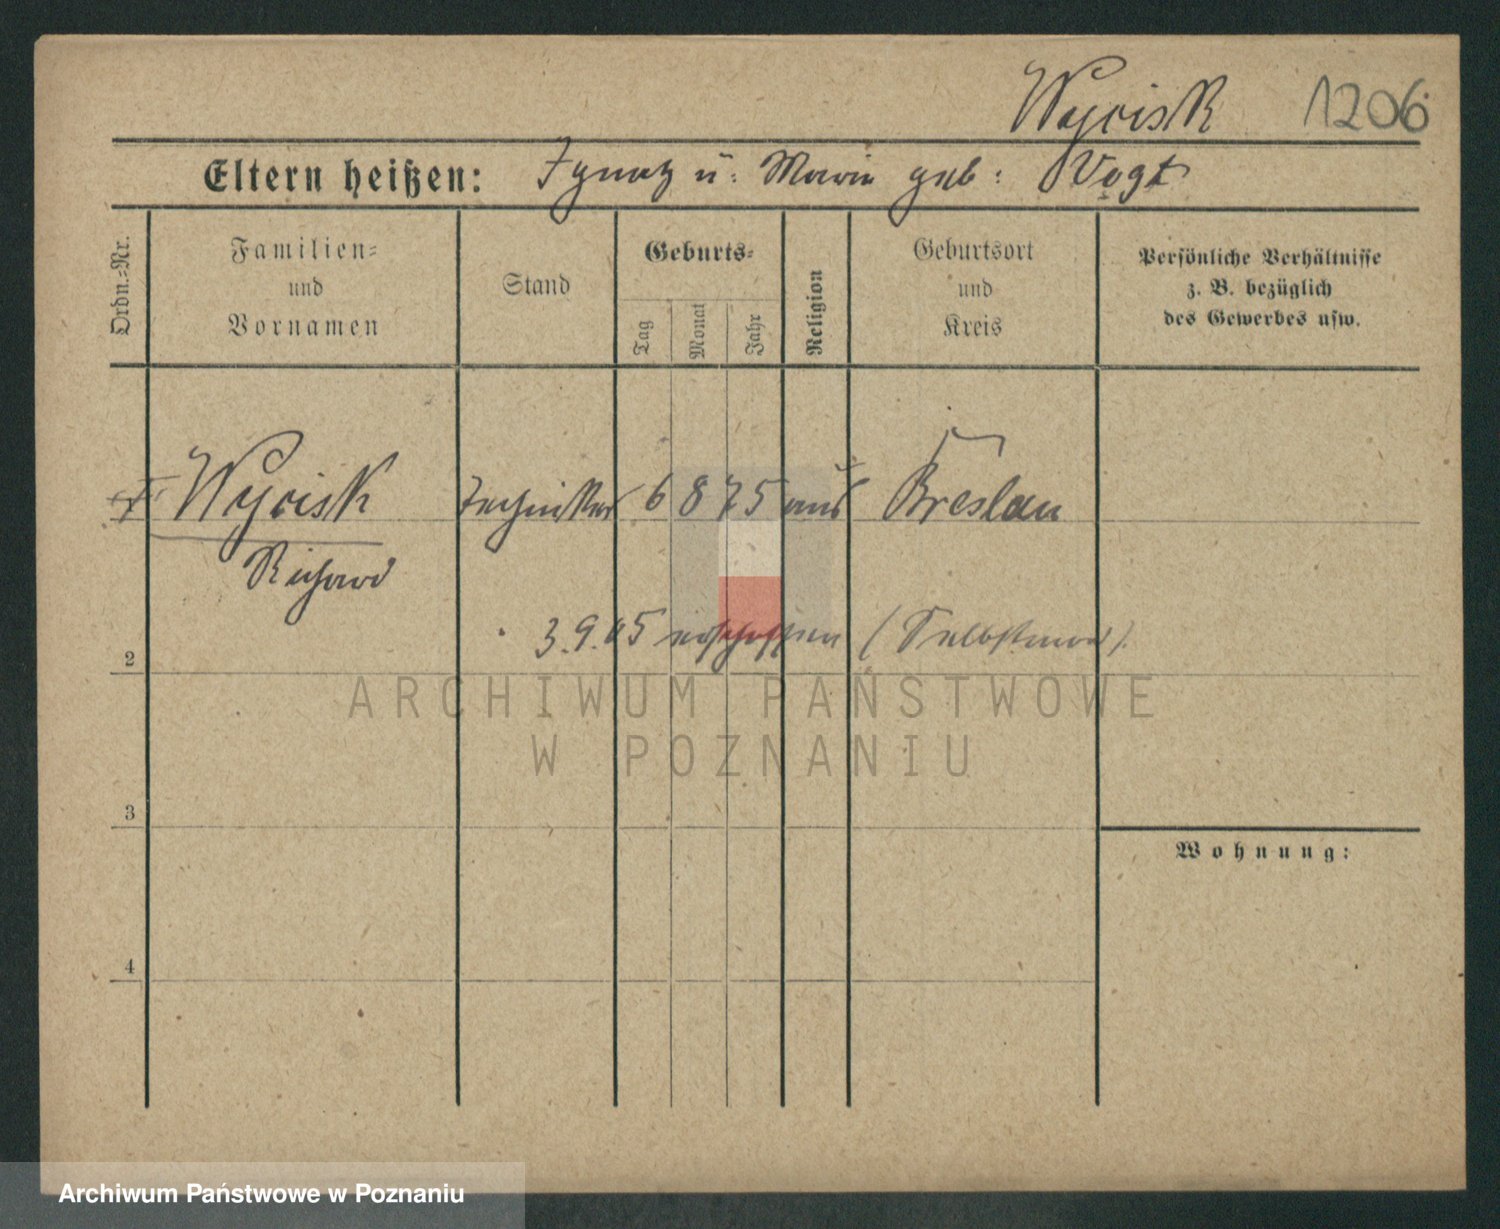 Wycisk 1206
Eltern heißen: Ignatz u. Marie geb: Vogt
Ordn.-Nr.
Familien-
und
Vornamen
Stand
Geburts-
Tag
Monat
Jahr
Religion
Geburtsort
und
Kreis
Persönliche Verhältnisse
z. B. bezüglich
des Gewerbes usw.
Wycisk Techniker 6 8 75 aus Breslau
Richard
3.9.05 erschossen (Selbstmord).
2
ARCHIWUM PAŃSTWOWE
W POZNANIU
3
Wohnung:
4
Archiwum Państwowe w Poznaniu